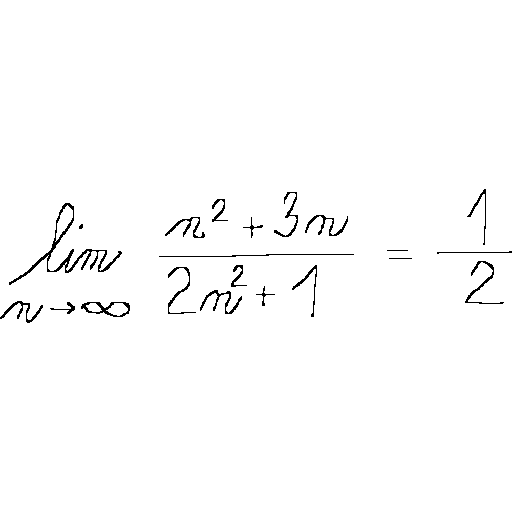 \lim_{n \to \infty} \frac{n^2 + 3n}{2n^2 + 1} = \frac{1}{2}